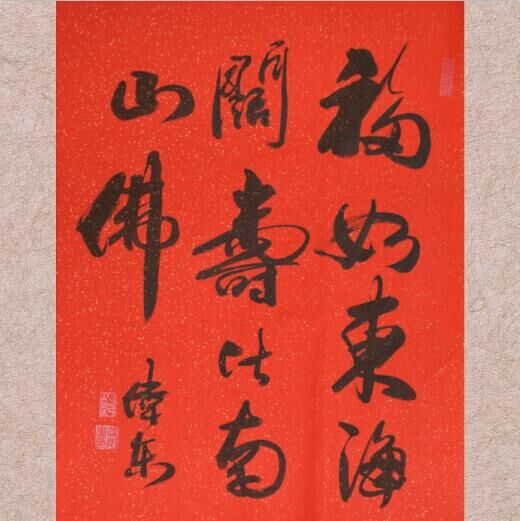 福如東海
闊壽比南
山佛